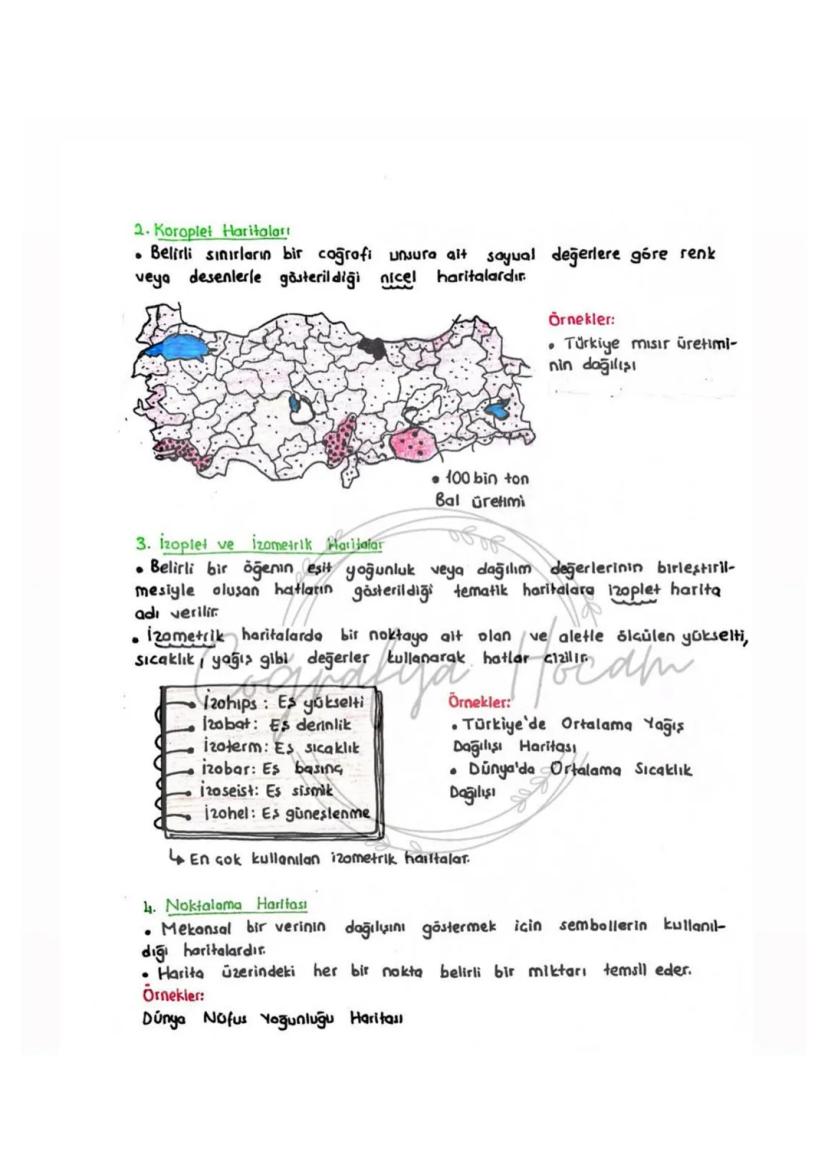 2. Koroplet Haritaları
• Belirli sınırların bir coğrafi unsura ait sayısal değerlere göre renk
veya desenlerle gösterildiği nicel haritalardır.
Örnekler:
• Türkiye mısır üretimi-
nin dağılışı
• 100 bin ton
Bal üretimi
3. İzoplet ve İzometrik Haritalar
• Belirli bir öğenin eşit yoğunluk veya dağılım değerlerinin birleştiril-
mesiyle oluşan hatların gösterildiği tematik haritalara izoplet harita
adı verilir.
• İzometrik haritalarda bir noktaya ait olan ve aletle ölçülen yükselti,
sıcaklık, yağış gibi değerler kullanarak hatlar çizilir.
Coğrafya Hocam
• İzohips : Eş yükselti
• İzobat: Eş derinlik
• İzoterm: Eş sıcaklık
• İzobar: Eş basınç
• İzoseist: Eş sismik
• İzohel: Eş güneşlenme
Örnekler:
• Türkiye'de Ortalama Yağış
Dağılışı Haritası
• Dünya'da Ortalama Sıcaklık
Dağılışı
↳ En çok kullanılan izometrik haritalar.
4. Noktalama Haritası
• Mekansal bir verinin dağılışını göstermek için sembollerin kullanıl-
dığı haritalardır.
• Harita üzerindeki her bir nokta belirli bir miktarı temsil eder.
Örnekler:
Dünya Nüfus Yoğunluğu Haritası